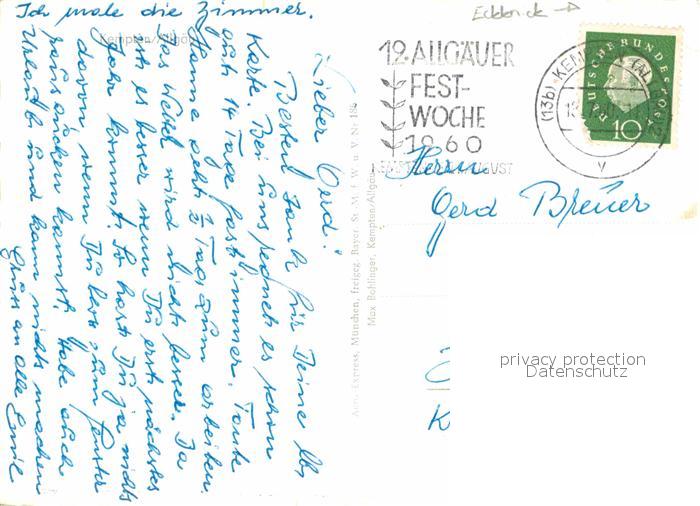 Ich male die Zimmer.
Kempten/Allgäu
Lieber Gerd!
Besten Dank für Deine lb.
Karte. Bei uns regnet es schon
auch 14 Tage fast immer. Tante
Hanne geht ½ Tag zum arbeiten.
Das Wetter wird nicht besser. Da
ist es besser wenn Du erst nächstes
Jahr kommst. So hast Du ja nichts
davon wenn Du blos zum Fenster
rausgucken kannst. Habe auch
Urlaub und kann nichts machen
Gruss an alle Emil
Aero Express, München, freigeg. Bayer. St. M. f. W. u. V. Nr. 188
Max Bohlinger, Kempten/Allgäu
Eckknick
12. ALLGÄUER
FEST-
WOCHE
1960
AUGUST
(13b) KEMPTEN
DEUTSCHE BUNDESPOST
10
Herrn
Gerd Breuer
K
privacy protection
Datenschutz